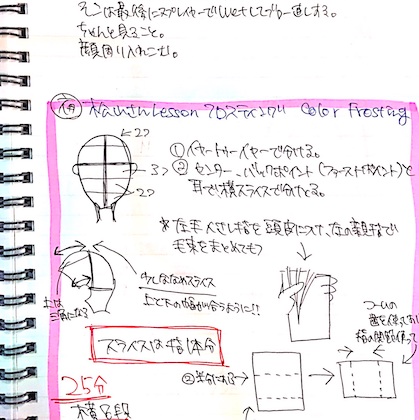 そこは最後にスプレイヤーでwetしてブロー直しする。
ちゃんと見ること。
顔周り入れこむ。
松山さん Lesson フロスティング Color Frosting
①イヤートゥーイヤーで分ける。
②センター、バックポイント(ファーストポイント)と
耳で、横スライスで分けとる。
2コ
3コ
2コ
*左手人さし指を頭皮につけ、左の親指で
毛束をまとめてもつ
少しななめスライス
上と下の幅が合うように!!
上は
三角になる
スライスは指1本分
25分
②半分に折る
コームの
歯を使って
指の関節使って
横2段